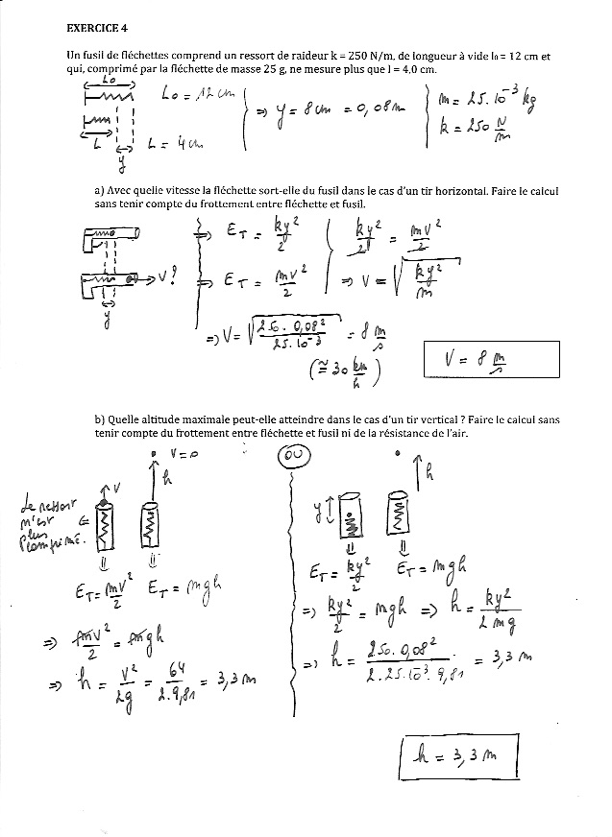 EXERCICE 4
Un fusil de fléchettes comprend un ressort de raideur k = 250 N/m, de longueur à vide l₀ = 12 cm et
qui, comprimé par la fléchette de masse 25 g, ne mesure plus que l = 4,0 cm.
L₀
L₀ = 12 cm
L
L = 4 cm
y
⇒ y = 8 cm = 0,08 m
m = 25. 10⁻³ kg
k = 250 N/m
a) Avec quelle vitesse la fléchette sort-elle du fusil dans le cas d'un tir horizontal. Faire le calcul
sans tenir compte du frottement entre fléchette et fusil.
⇒ E_T = ky²/2
V?
⇒ E_T = mv²/2
y
ky²/2 = mv²/2
⇒ V = √(ky²/m)
⇒ V = √(250. 0,08²/25.10⁻³) = 8 m/s
(≅ 30 km/h)
V = 8 m/s
b) Quelle altitude maximale peut-elle atteindre dans le cas d'un tir vertical ? Faire le calcul sans
tenir compte du frottement entre fléchette et fusil ni de la résistance de l'air.
V = 0
h
V
Le ressort
n'est
plus
comprimé.
E_T = mv²/2
E_T = mgh
⇒ mv²/2 = mgh
⇒ h = v²/2g = 64/2.9,81 = 3,3 m
OU
h
y
E_T = ky²/2
E_T = mgh
⇒ ky²/2 = mgh ⇒ h = ky²/2mg
⇒ h = 250. 0,08²/2.25.10⁻³. 9,81 = 3,3 m
h = 3,3 m